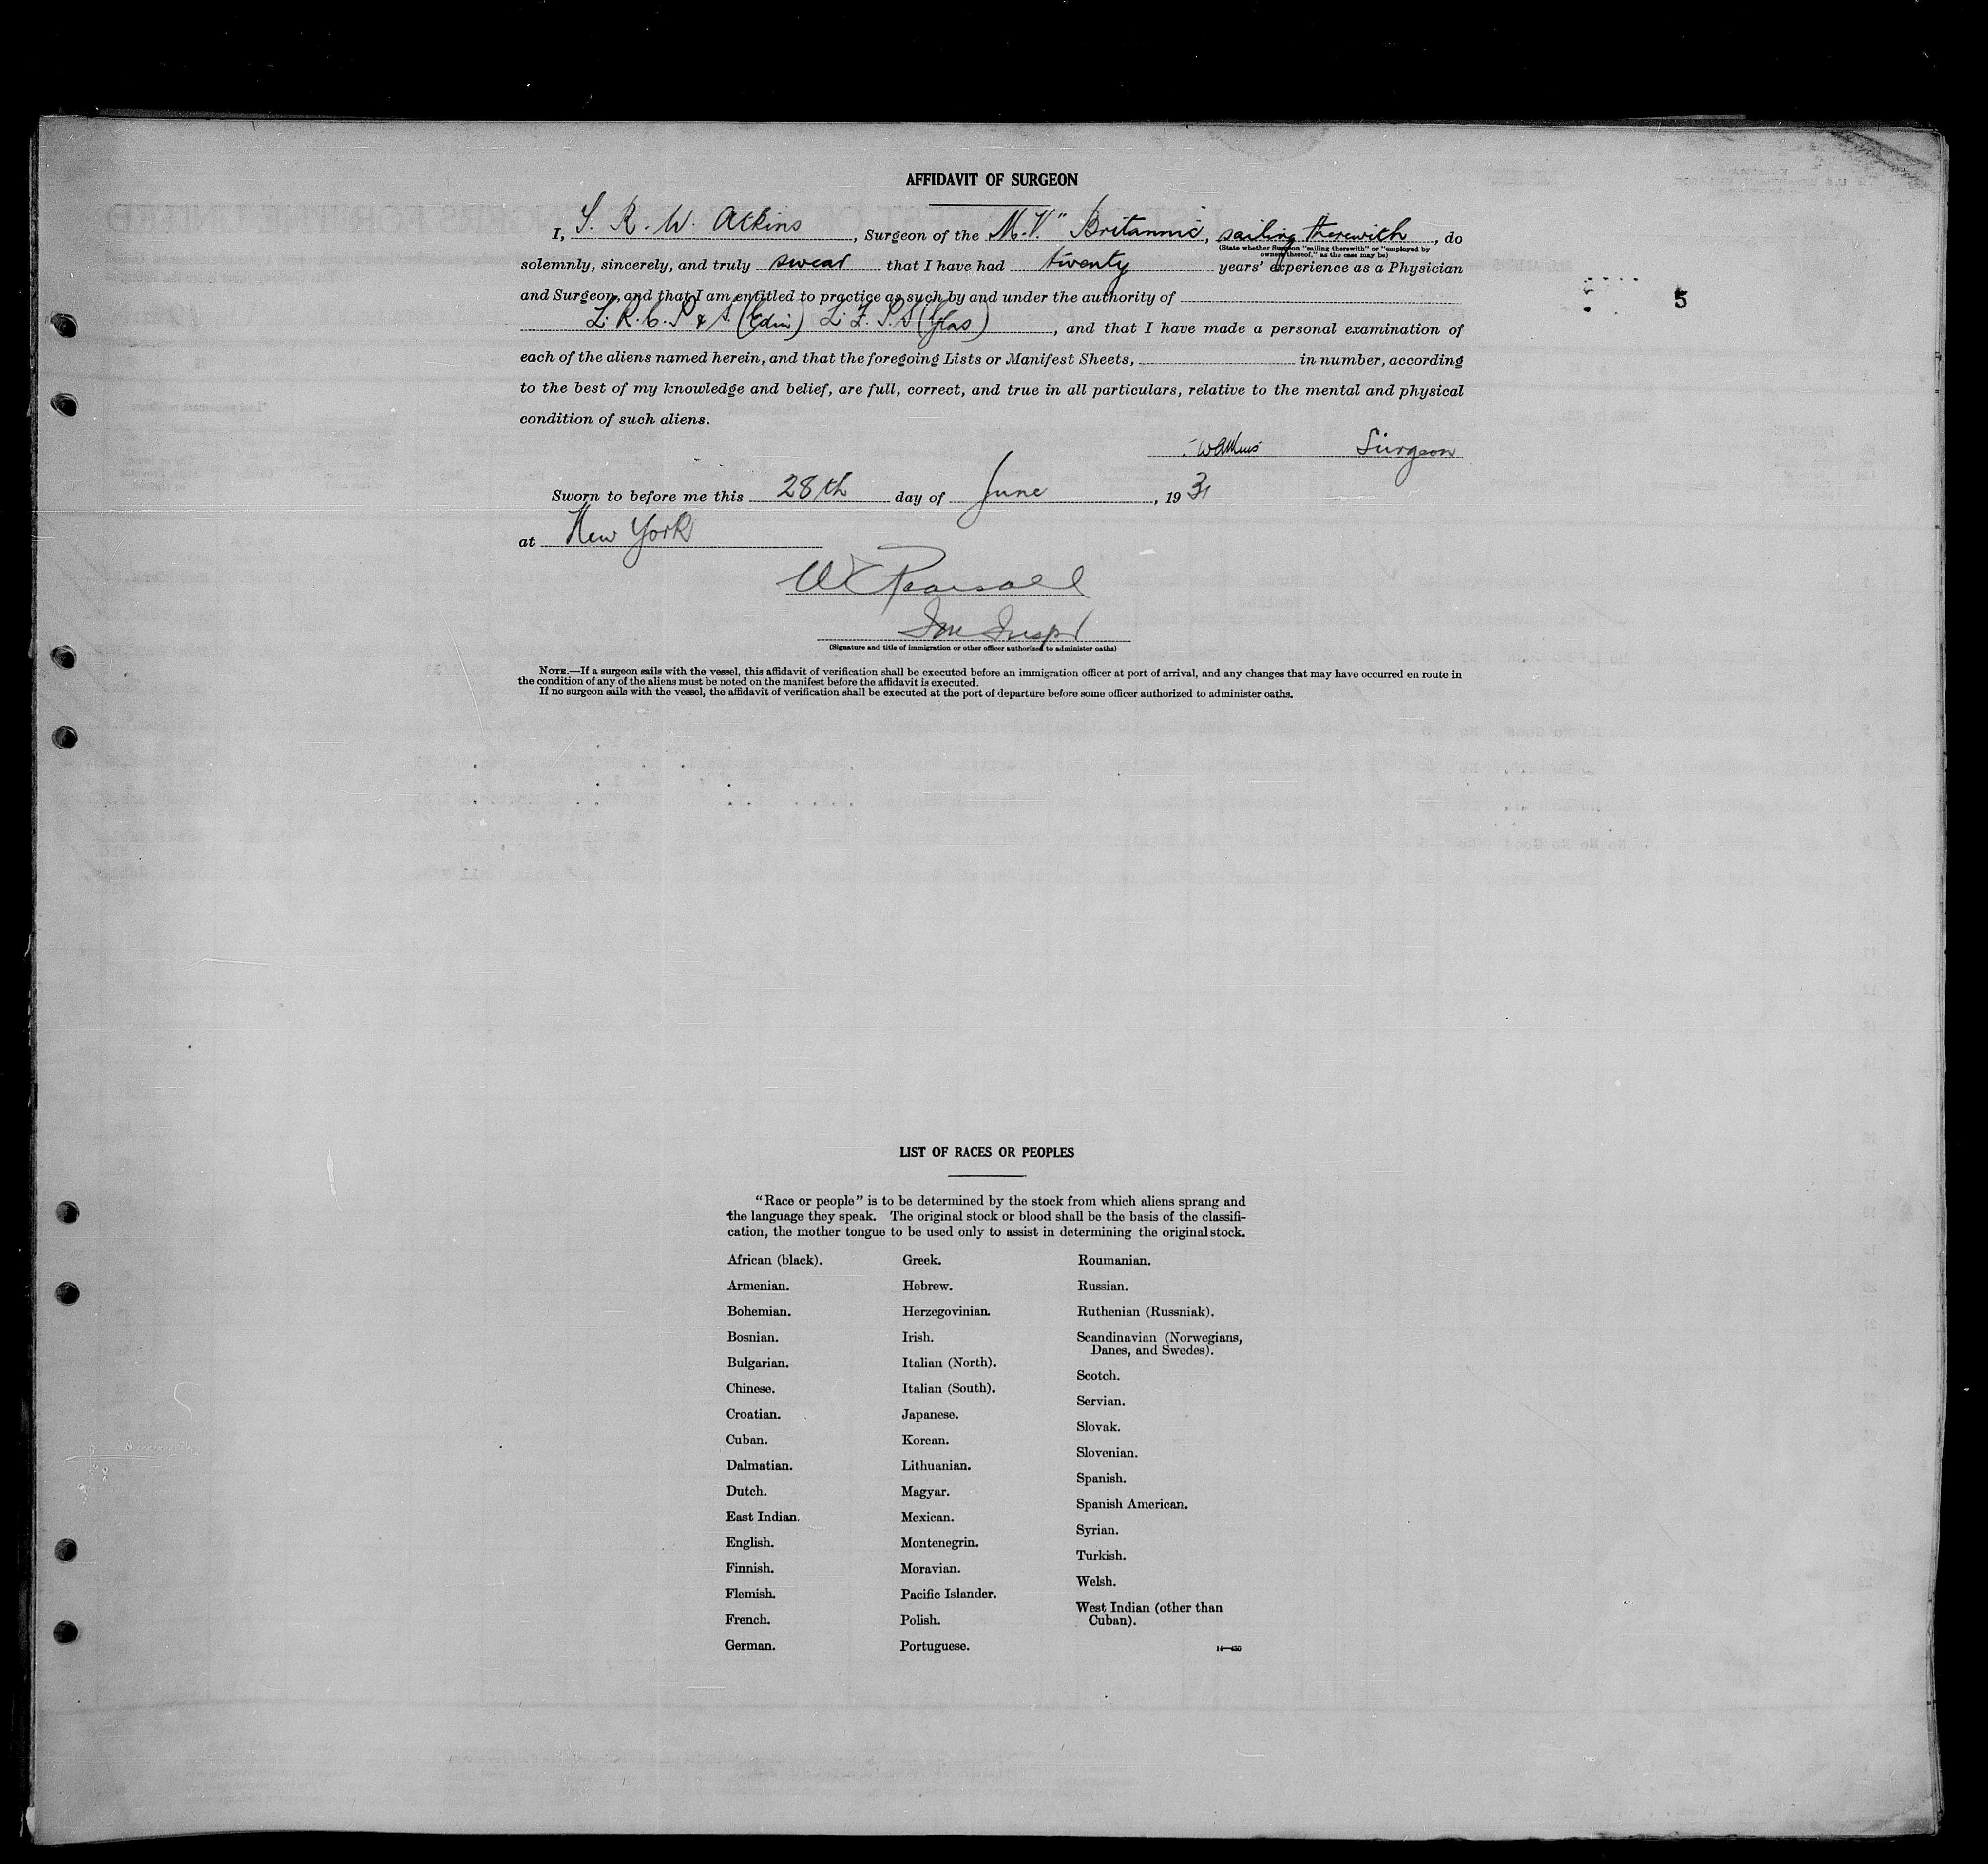 AFFIDAVIT OF SURGEON
I, S. R. W. Atkins, Surgeon of the M.V. " Britannic, sailing therewith, do
(State whether Surgeon "sailing therewith" or "employed by
owners thereof," as the case may be)
solemnly, sincerely, and truly swear that I have had twenty years' experience as a Physician
and Surgeon, and that I am entitled to practice as such by and under the authority of
5
L. R. C. P & S. (Edin) L. F. P. S (Glas), and that I have made a personal examination of
each of the aliens named herein, and that the foregoing Lists or Manifest Sheets, in number, according
to the best of my knowledge and belief, are full, correct, and true in all particulars, relative to the mental and physical
condition of such aliens.
Surgeon
Sworn to before me this 28th day of June, 1931
at New York
W Pearsall
Imm Inspr
(Signature and title of immigration or other officer authorized to administer oaths)
NOTE.—If a surgeon sails with the vessel, this affidavit of verification shall be executed before an immigration officer at port of arrival, and any changes that may have occurred en route in
the condition of any of the aliens must be noted on the manifest before the affidavit is executed.
If no surgeon sails with the vessel, the affidavit of verification shall be executed at the port of departure before some officer authorized to administer oaths.
LIST OF RACES OR PEOPLES
"Race or people" is to be determined by the stock from which aliens sprang and
the language they speak. The original stock or blood shall be the basis of the classifi-
cation, the mother tongue to be used only to assist in determining the original stock.
African (black).
Armenian.
Bohemian.
Bosnian.
Bulgarian.
Chinese.
Croatian.
Cuban.
Dalmatian.
Dutch.
East Indian.
English.
Finnish.
Flemish.
French.
German.
Greek.
Hebrew.
Herzegovinian.
Irish.
Italian (North).
Italian (South).
Japanese.
Korean.
Lithuanian.
Magyar.
Mexican.
Montenegrin.
Moravian.
Pacific Islander.
Polish.
Portuguese.
Roumanian.
Russian.
Ruthenian (Russniak).
Scandinavian (Norwegians,
Danes, and Swedes).
Scotch.
Servian.
Slovak.
Slovenian.
Spanish.
Spanish American.
Syrian.
Turkish.
Welsh.
West Indian (other than
Cuban).
14—430